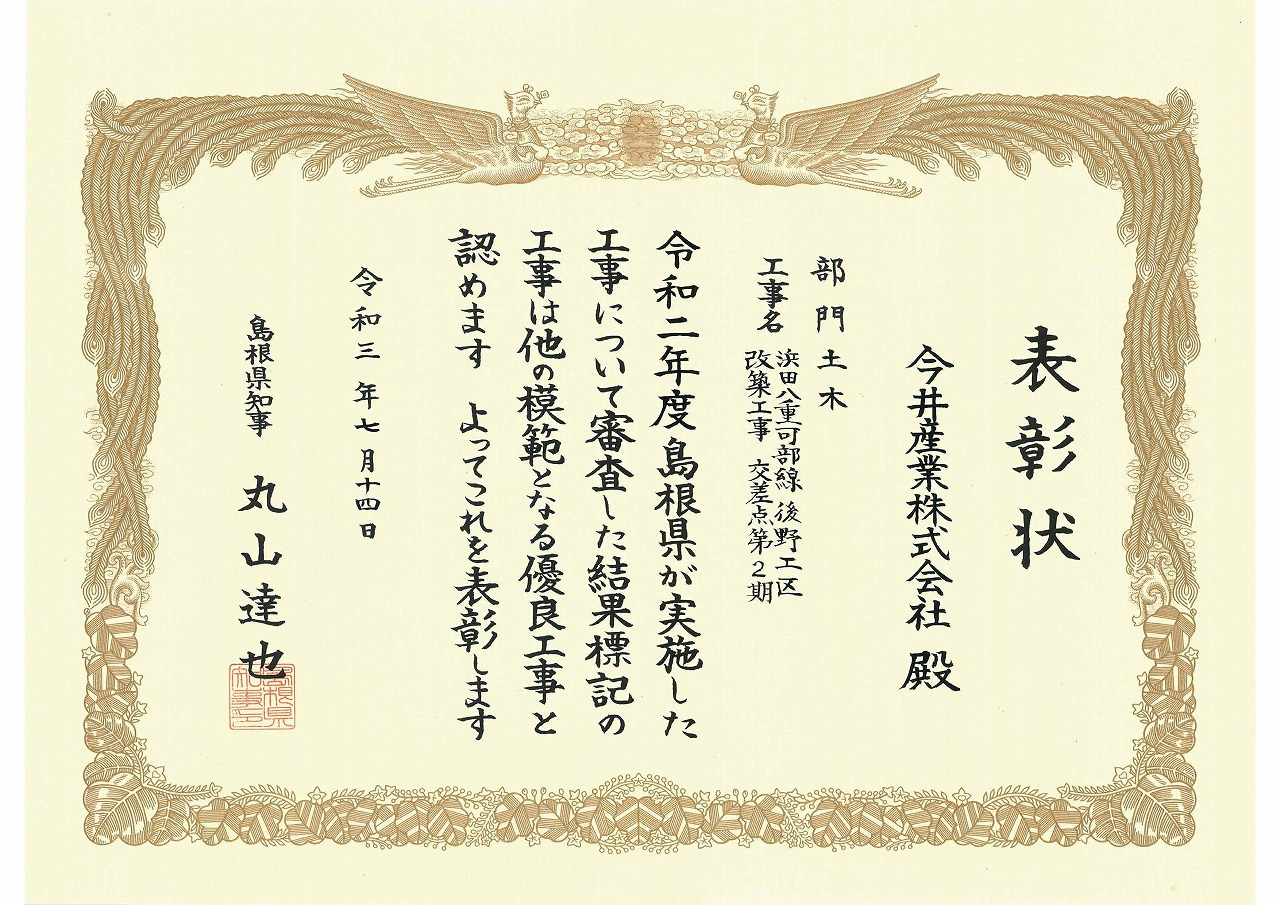 表彰状
今井産業株式会社 殿
部門 土木
工事名 浜田八重可部線 後野工区
改築工事 交差点第2期
令和二年度島根県が実施した
工事について審査した結果標記の
工事は他の模範となる優良工事と
認めます よってこれを表彰します
令和三年七月十四日
島根県知事 丸山達也
島根県
知事印